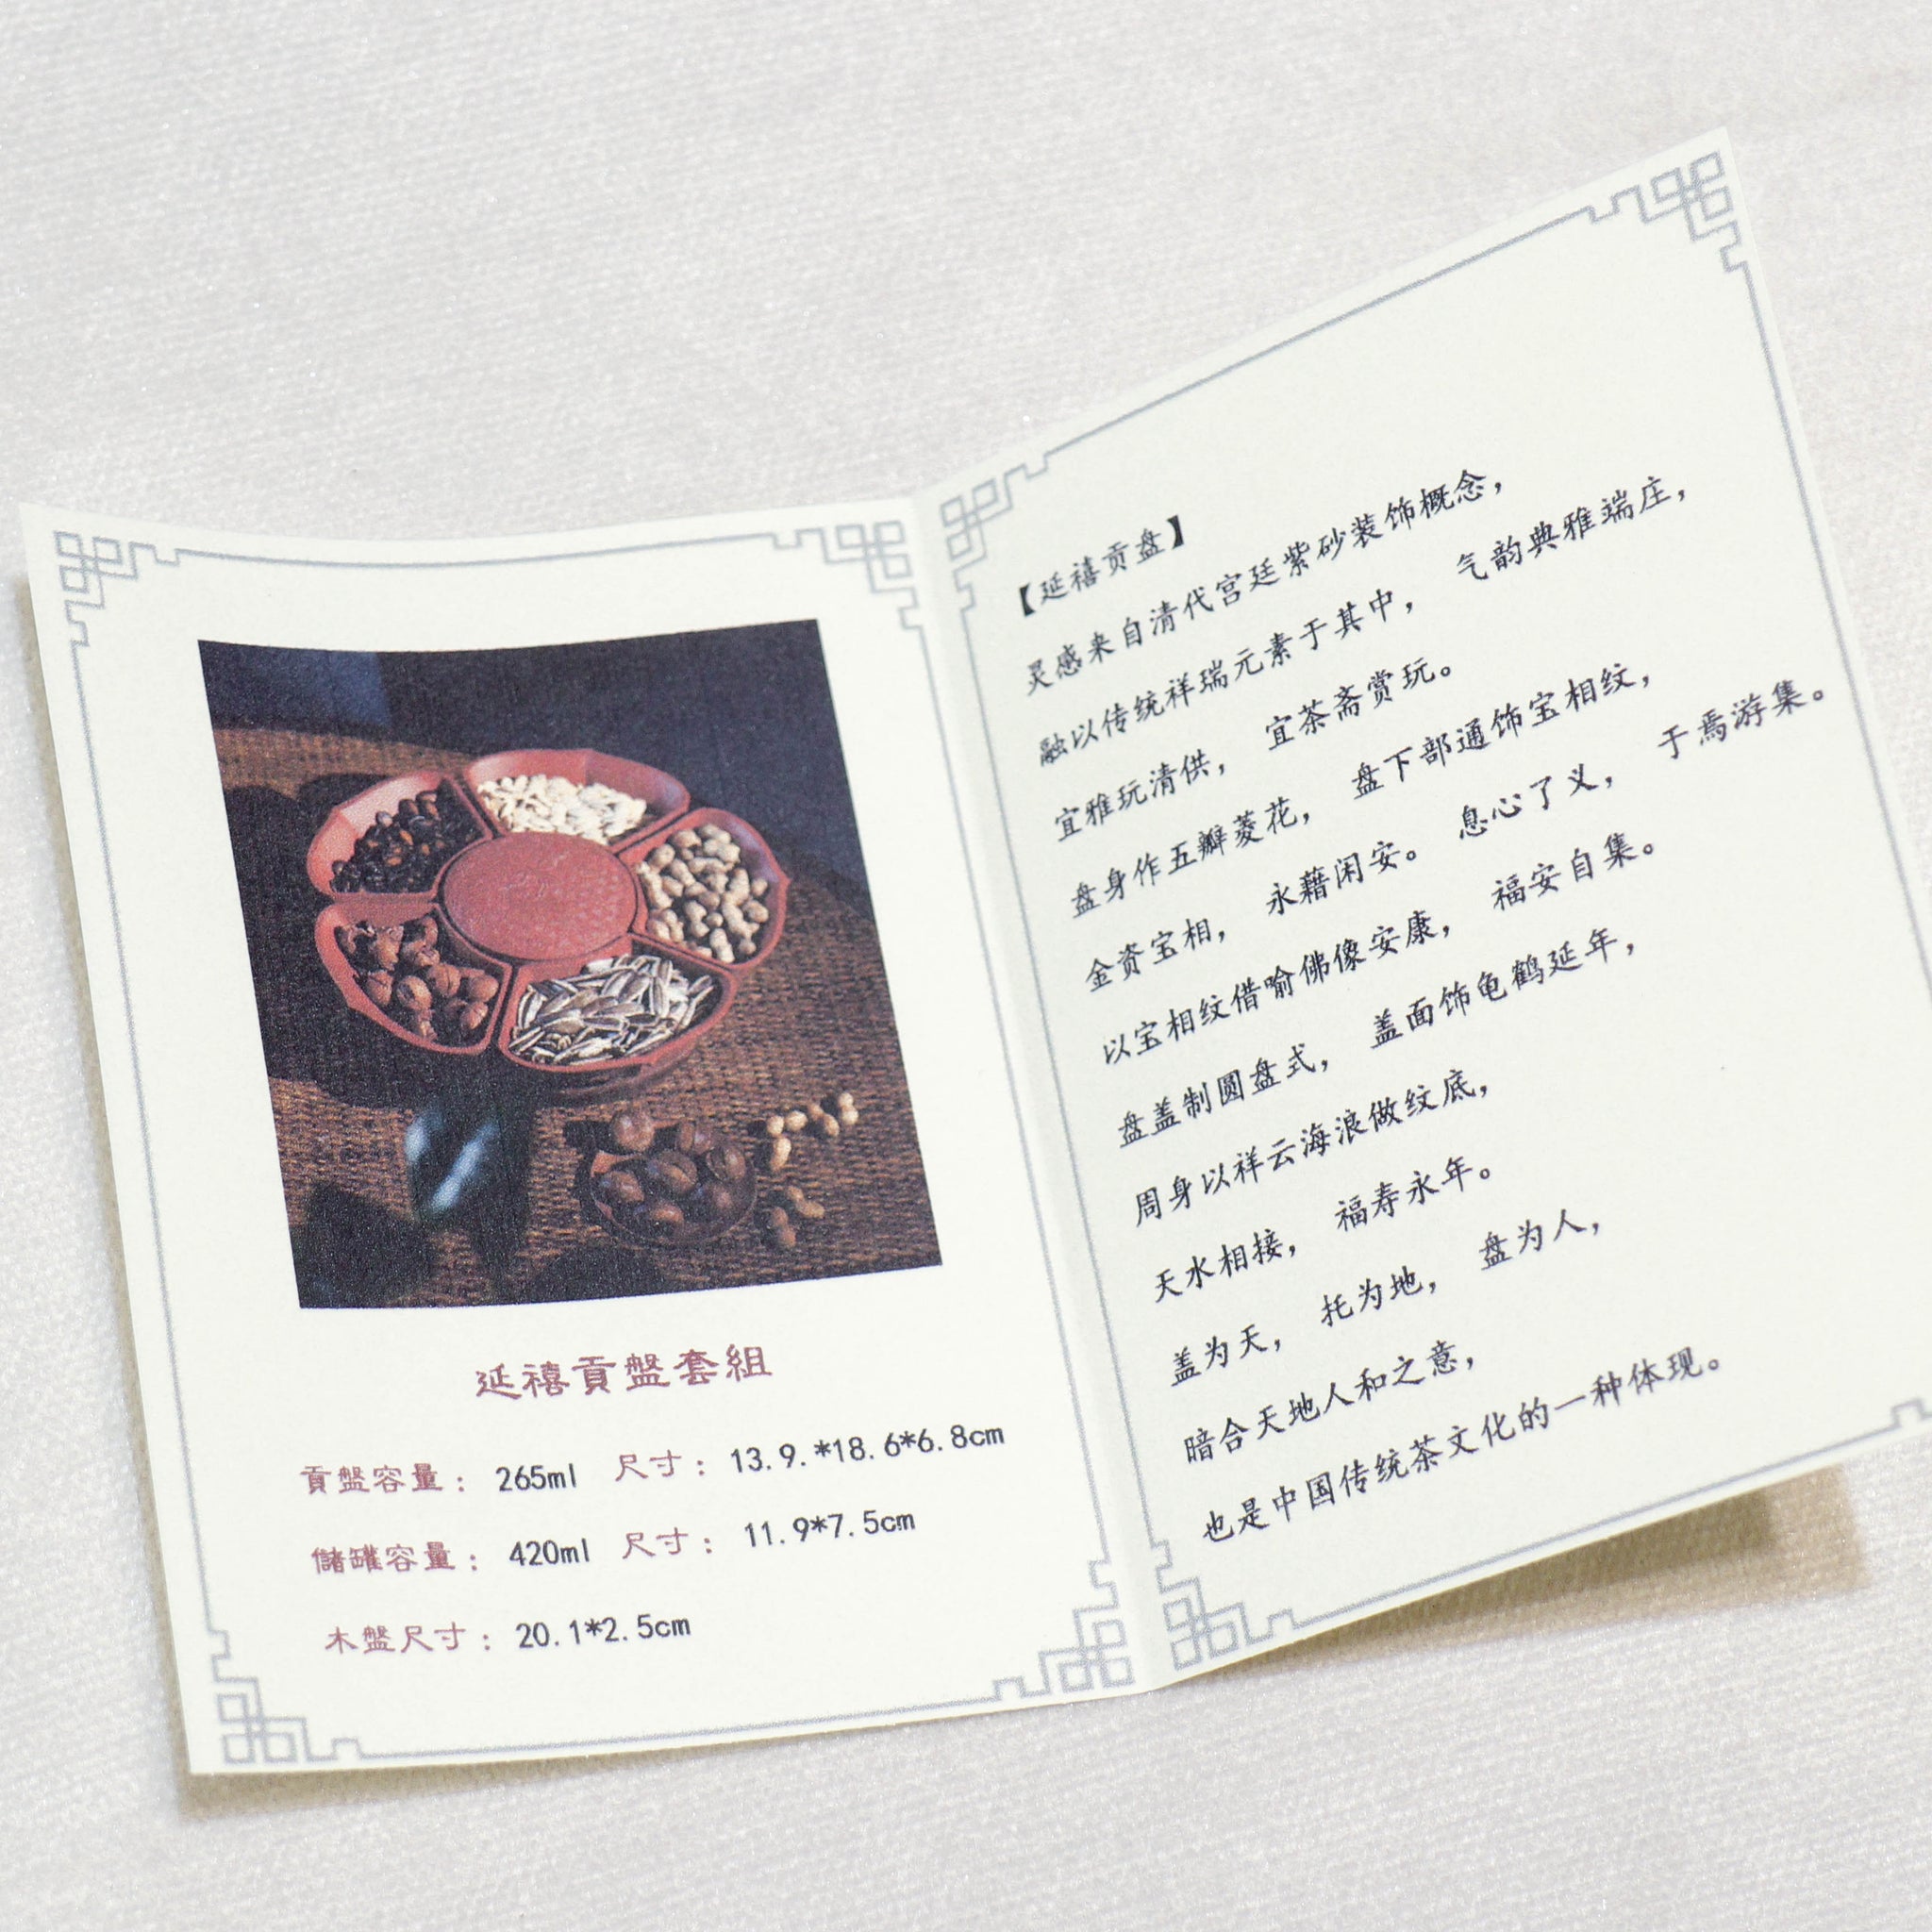 延禧貢盤套組
貢盤容量： 265ml 尺寸： 13.9.*18.6*6.8cm
儲罐容量： 420ml 尺寸： 11.9*7.5cm
木盤尺寸： 20.1*2.5cm
【延禧贡盘】
灵感来自清代宫廷紫砂装饰概念，
融以传统祥瑞元素于其中， 气韵典雅端庄，
宜雅玩清供， 宜茶斋赏玩。
盘身作五瓣菱花， 盘下部通饰宝相纹，
金资宝相， 永藉闲安。 息心了义， 于焉游集。
以宝相纹借喻佛像安康， 福安自集。
盘盖制圆盘式， 盖面饰龟鹤延年，
周身以祥云海浪做纹底，
天水相接， 福寿永年。
盖为天， 托为地， 盘为人，
暗合天地人和之意，
也是中国传统茶文化的一种体现。